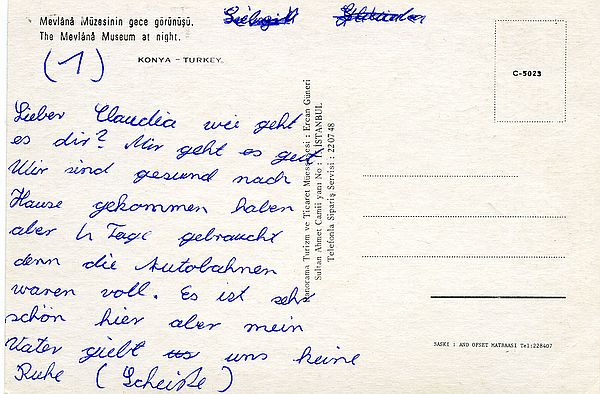 Mevlânâ Müzesinin gece görünüşü.
The Mevlânâ Museum at night.
KONYA - TURKEY.
(1)
Lieber Claudia wie geht
es dir? Mir geht es gut
Wir sind gesund nach
Hause gekommen haben
aber 4 Tage gebraucht
denn die Autobahnen
waren voll. Es ist sehr
schön hier aber mein
Vater giebt uns uns keine
Ruhe (Scheiße)
Panorama Turizm ve Ticaret Müessesesi : Ercan Güneri
Sultan Ahmet Camii yanı No : İSTANBUL
Telefonla Sipariş Servisi : 22 07 48
C-5023
BASKI : AND OFSET MATBAASI Tel:228407